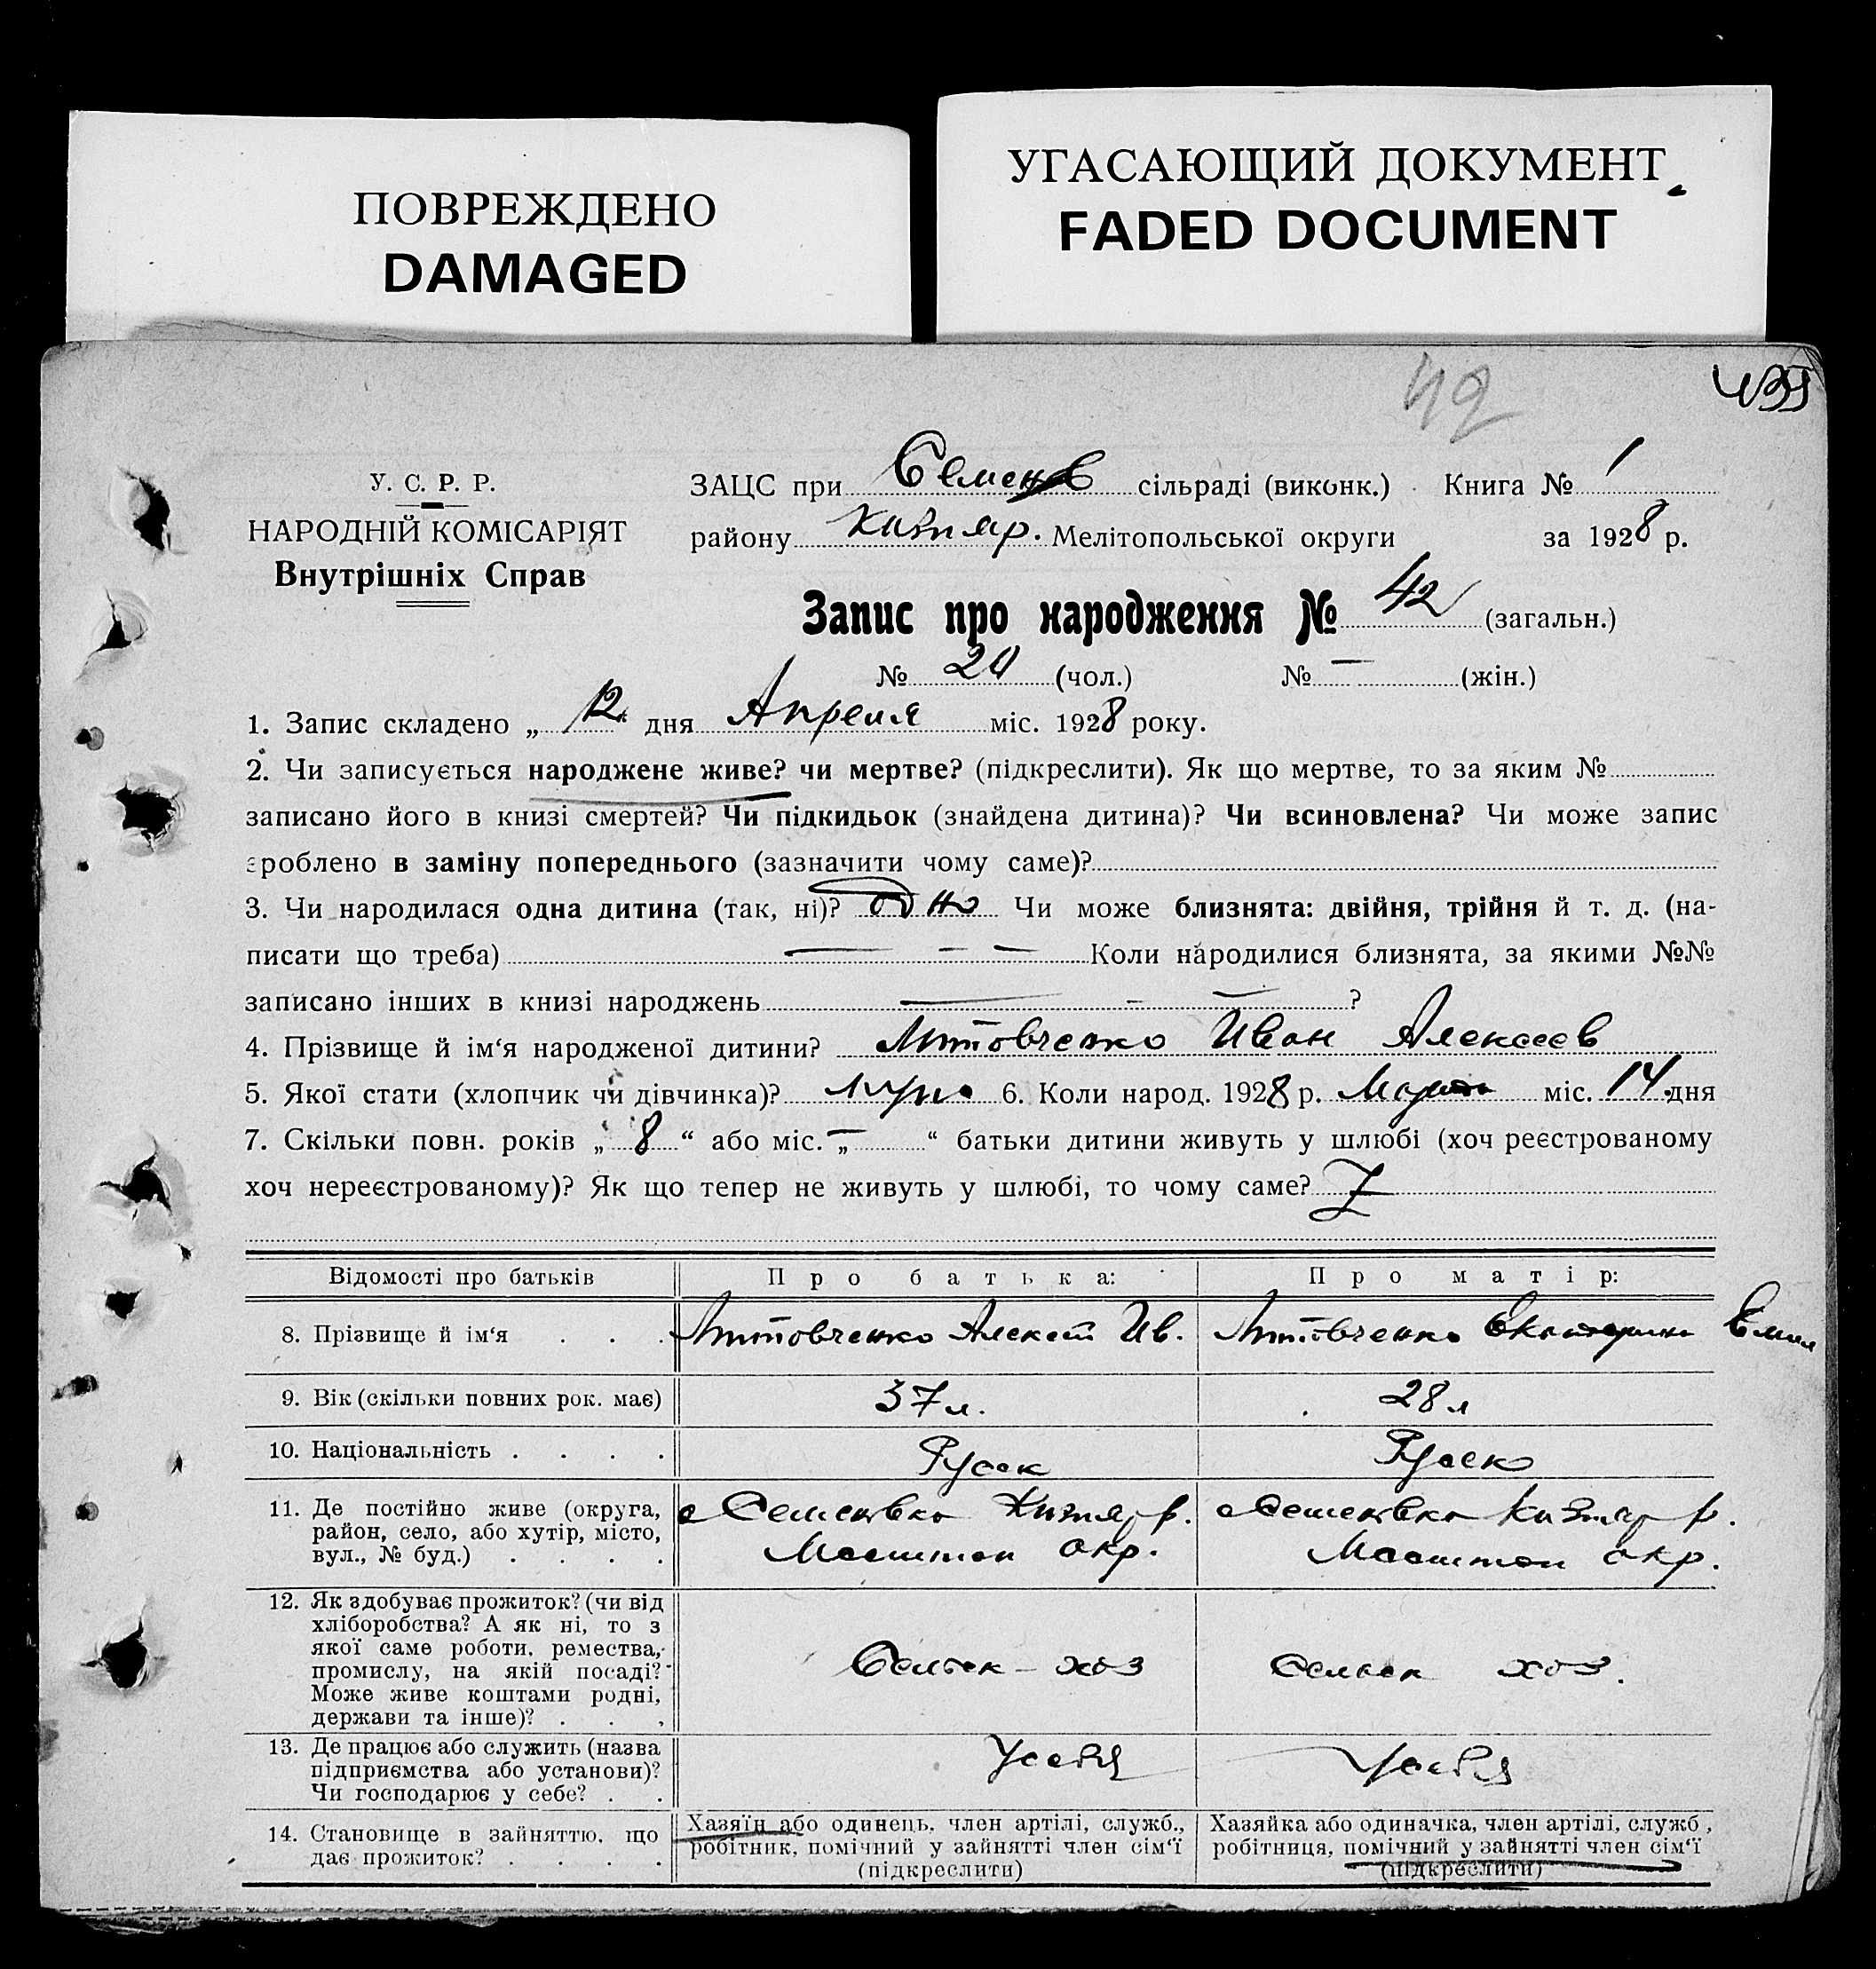 ПОВРЕЖДЕНО
DAMAGED
УГАСАЮЩИЙ ДОКУМЕНТ
FADED DOCUMENT
42
У. С. Р. Р.
НАРОДНІЙ КОМІСАРІЯТ
Внутрішніх Справ
ЗАЦС при Семенов сільраді (виконк.) Книга № 1
району Кизияр. Мелітопольської округи за 1928 р.
Запис про народження № 42 (загальн.)
№ 20 (чол.) № — (жін.)
1. Запис складено „ 12 “ дня Апреля міс. 1928 року.
2. Чи записується народжене живе? чи мертве? (підкреслити). Як що мертве, то за яким №
записано його в книзі смертей? Чи підкидьок (знайдена дитина)? Чи всиновлена? Чи може запис
зроблено в заміну попереднього (зазначити чому саме)?
3. Чи народилася одна дитина (так, ні)? одно Чи може близнята: двійня, трійня й т. д. (на-
писати що треба) — — — Коли народилися близнята, за якими №№
записано інших в книзі народжень — — — ?
4. Прізвище й ім‘я народженої дитини? Литовченко Иван Алексеев
5. Якої стати (хлопчик чи дівчинка)? муж 6. Коли народ. 1928 р. Марта міс. 14 дня
7. Скільки повн. років „ 8 “ або міс. „ — “ батьки дитини живуть у шлюбі (хоч реєстрованому
хоч нереєстрованому)? Як що тепер не живуть у шлюбі, то чому саме?
Відомості про батьків Про батька: Про матір:
8. Прізвище й ім‘я . . . Литовченко Алексей Ив. Литовченко Екатерина Емил
9. Вік (скільки повних рок. має) 37 л. 28 л
10. Національність . . . . Руск Руск
11. Де постійно живе (округа, район, село, або хутір, місто, вул., № буд.) . . . .
с Семеновка Кизияр р.
Мелитоп окр.
с Семеновка Кизияр р.
Мелитоп окр.
12. Як здобуває прожиток? (чи від
хліборобства? А як ні, то з
якої саме роботи, ремества,
промислу, на якій посаді?
Може живе коштами родні,
держави та інше)? . . .
Сельск - хоз
Сельск хоз.
13. Де працює або служить (назва
підприємства або установи)?
Чи господарює у себе? . .
У себя
У себя
14. Становище в зайняттю, що
дає прожиток? . . . .
Хазяїн або одинець, член артілі, служб.,
робітник, помічний у зайнятті член сім‘ї
(підкреслити)
Хазяйка або одиначка, член артілі, служб.,
робітниця, помічний у зайнятті член сім‘ї
(підкреслити)